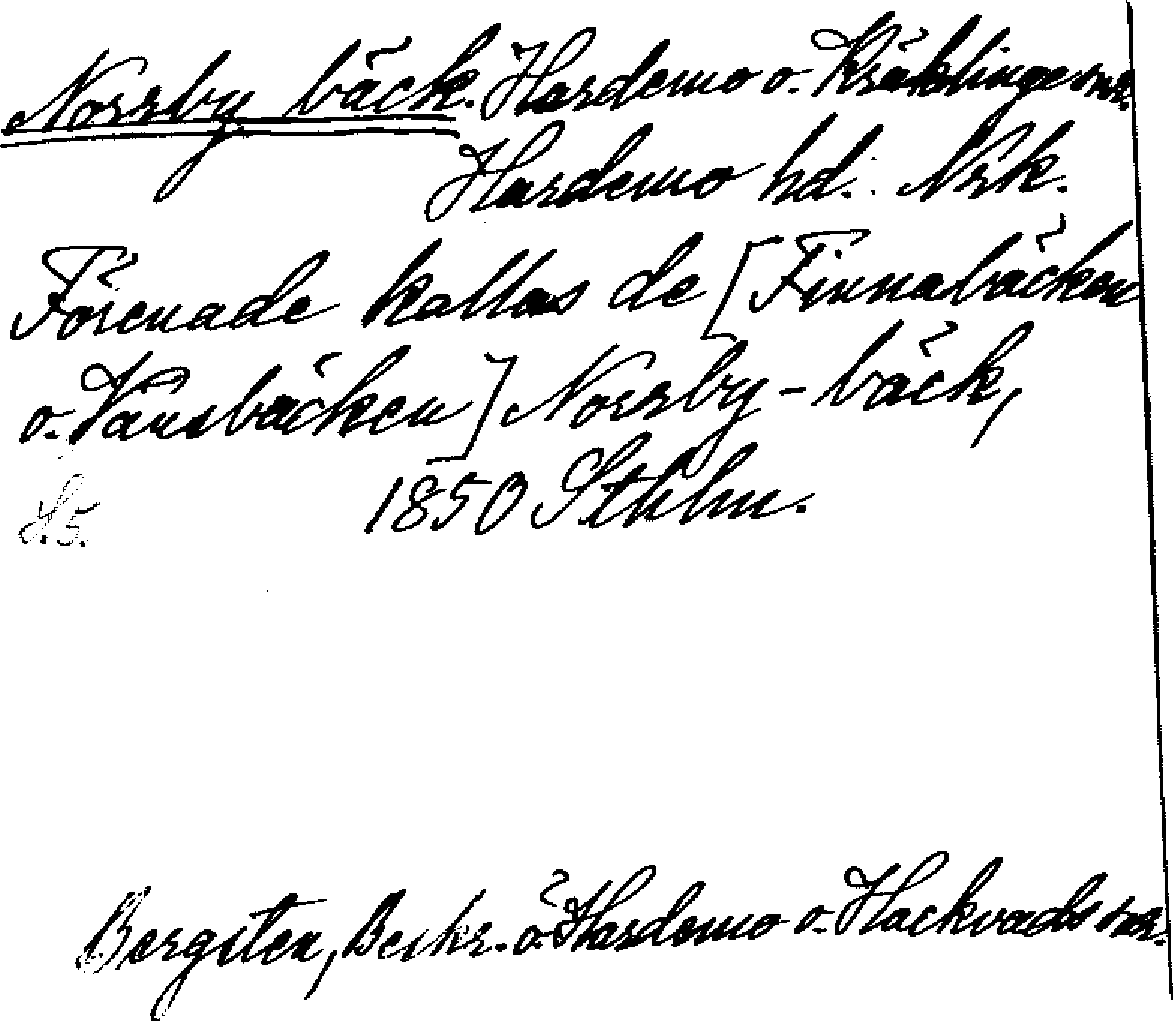 Norrby bäck. Hardemo o. Kräklinge snr.
Hardemo hd. Nrk.
Förenade kallas de [Finnabäcken
o. Vausbäcken] Norrby-bäck,
1850 Sthlm.
S. 5.
Bergsten, Beskr. ö. Hardemo o. Hackvads snr.